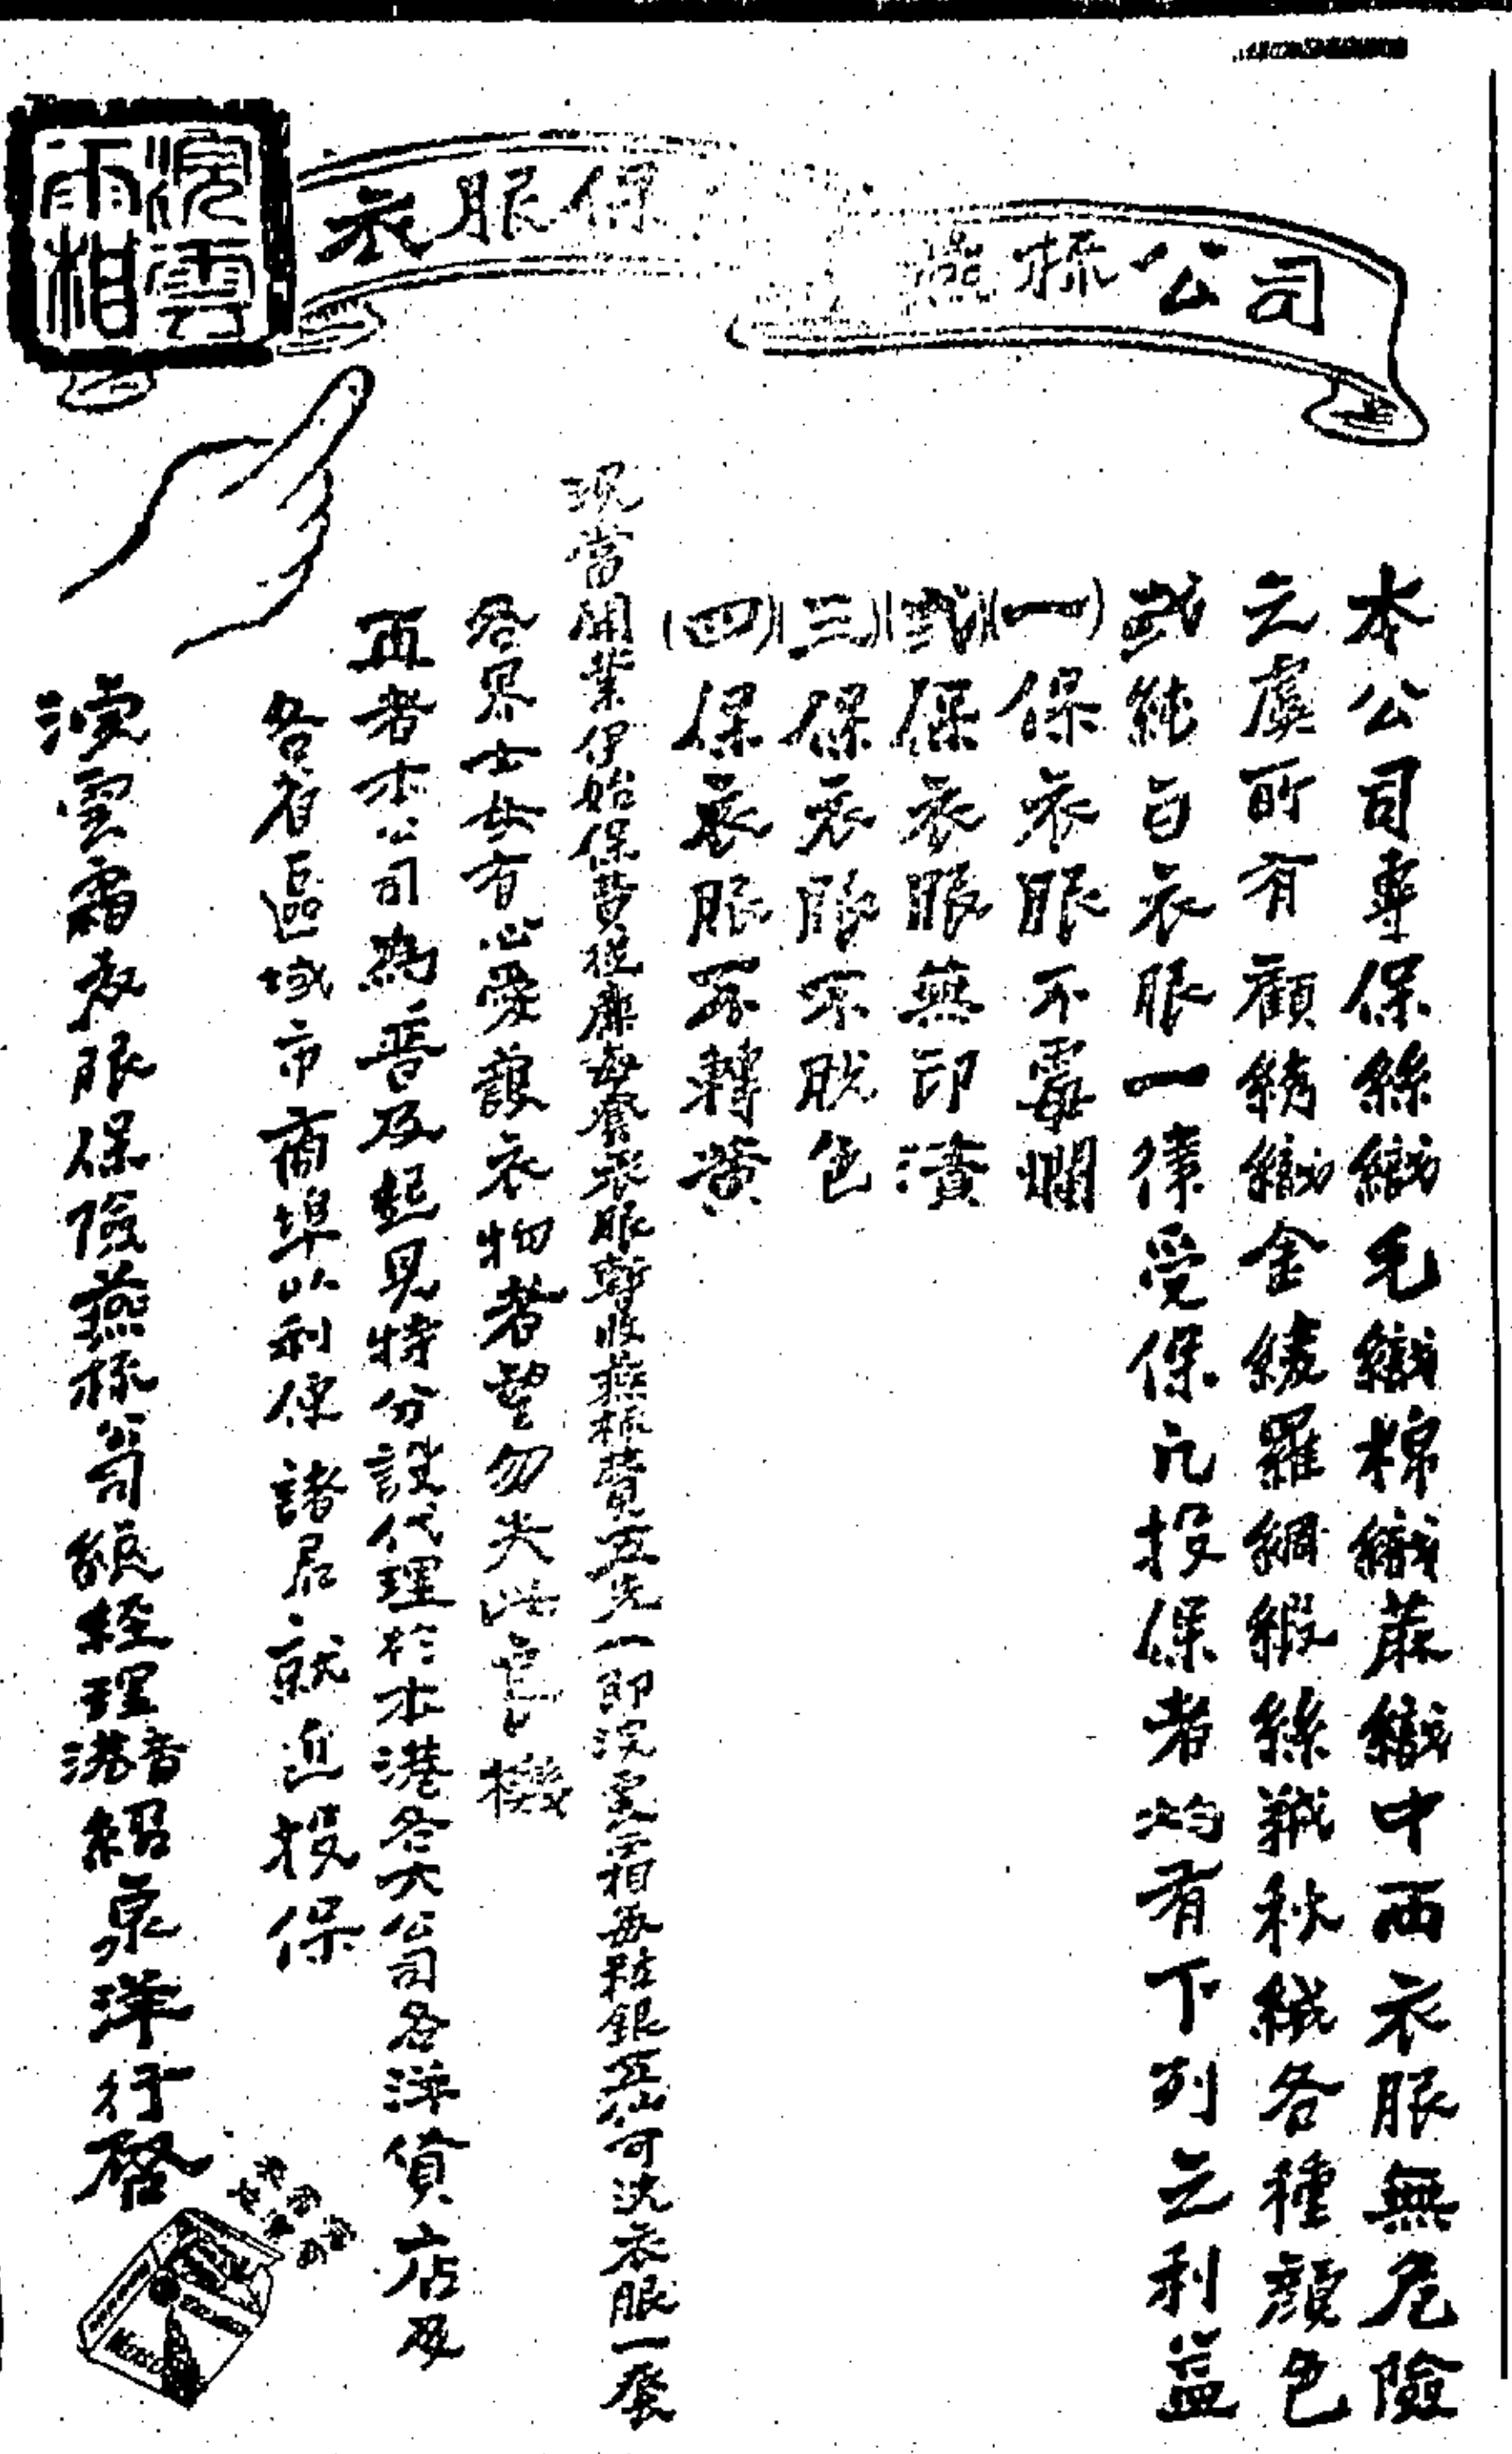 浣雲霜
衣服保燕梳公司
本公司專保絲織毛織棉織蔴織中西衣服無危險
之虞所有顧綉織金綾羅綢緞絲羢秋絨各種顏色
或純白衣服一律受保凡投保者均有下列之利益
(一)保衣服不霉爛
(弍)保衣服無印漬
(三)保衣服不脫色
(四)保衣服不轉黃
現當開業伊始保費從廉每套衣服暫收燕梳費五先一即浣雲霜每粒銀五仙可洗衣服一套
各界士女有心愛護衣物者望勿失此良機
再者本公司為普及起見特分設代理於本港各大公司各洋貨店及
各省區域市商埠以利便諸君就近投保
浣雲霜衣服保險燕梳公司總經理香港紹泉洋行啓